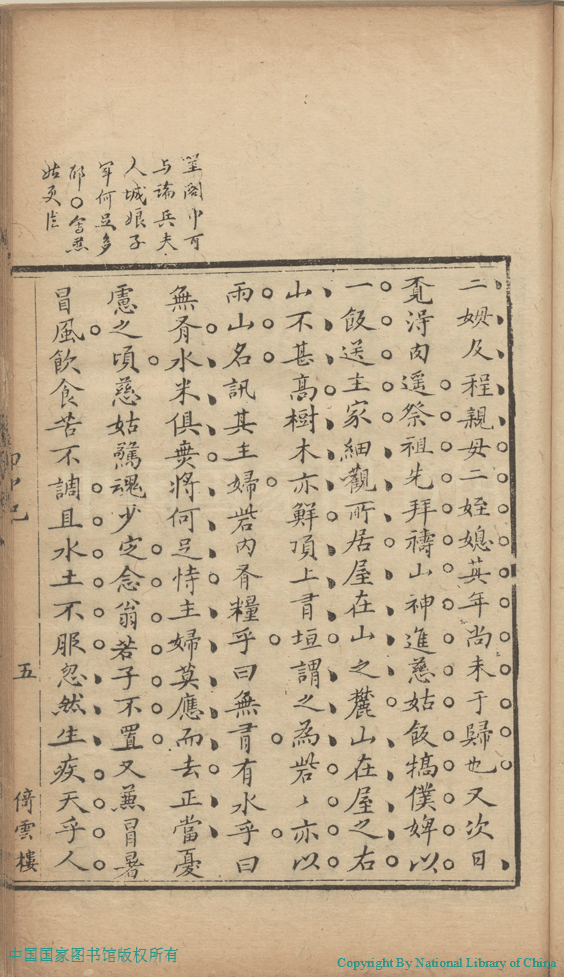 閨閣中可
与論兵夫
人城娘子
軍何足多
耶
姑更
二及程親母二姪媳其年尚未于歸也又次日
覔淂肉遥祭祖先拜禱山神進慈姑飯犒僕婢以
一飯送主家細觀所居屋在山之麓山在屋之右
山不甚高樹木亦鮮頂上有垣謂之為砦〻亦以
雨山名訊其主婦砦内有糧乎曰無有有水乎曰
無有水米俱無將何足恃主婦莫應而去正當憂
慮之頃慈姑驚魂少定念翁若子不置又兼冒暑
冒風飲食苦不調且水土不服忽然生疾天乎人
五
倚雲樓
中国国家图书馆版权所有
Copyright By National Library of China